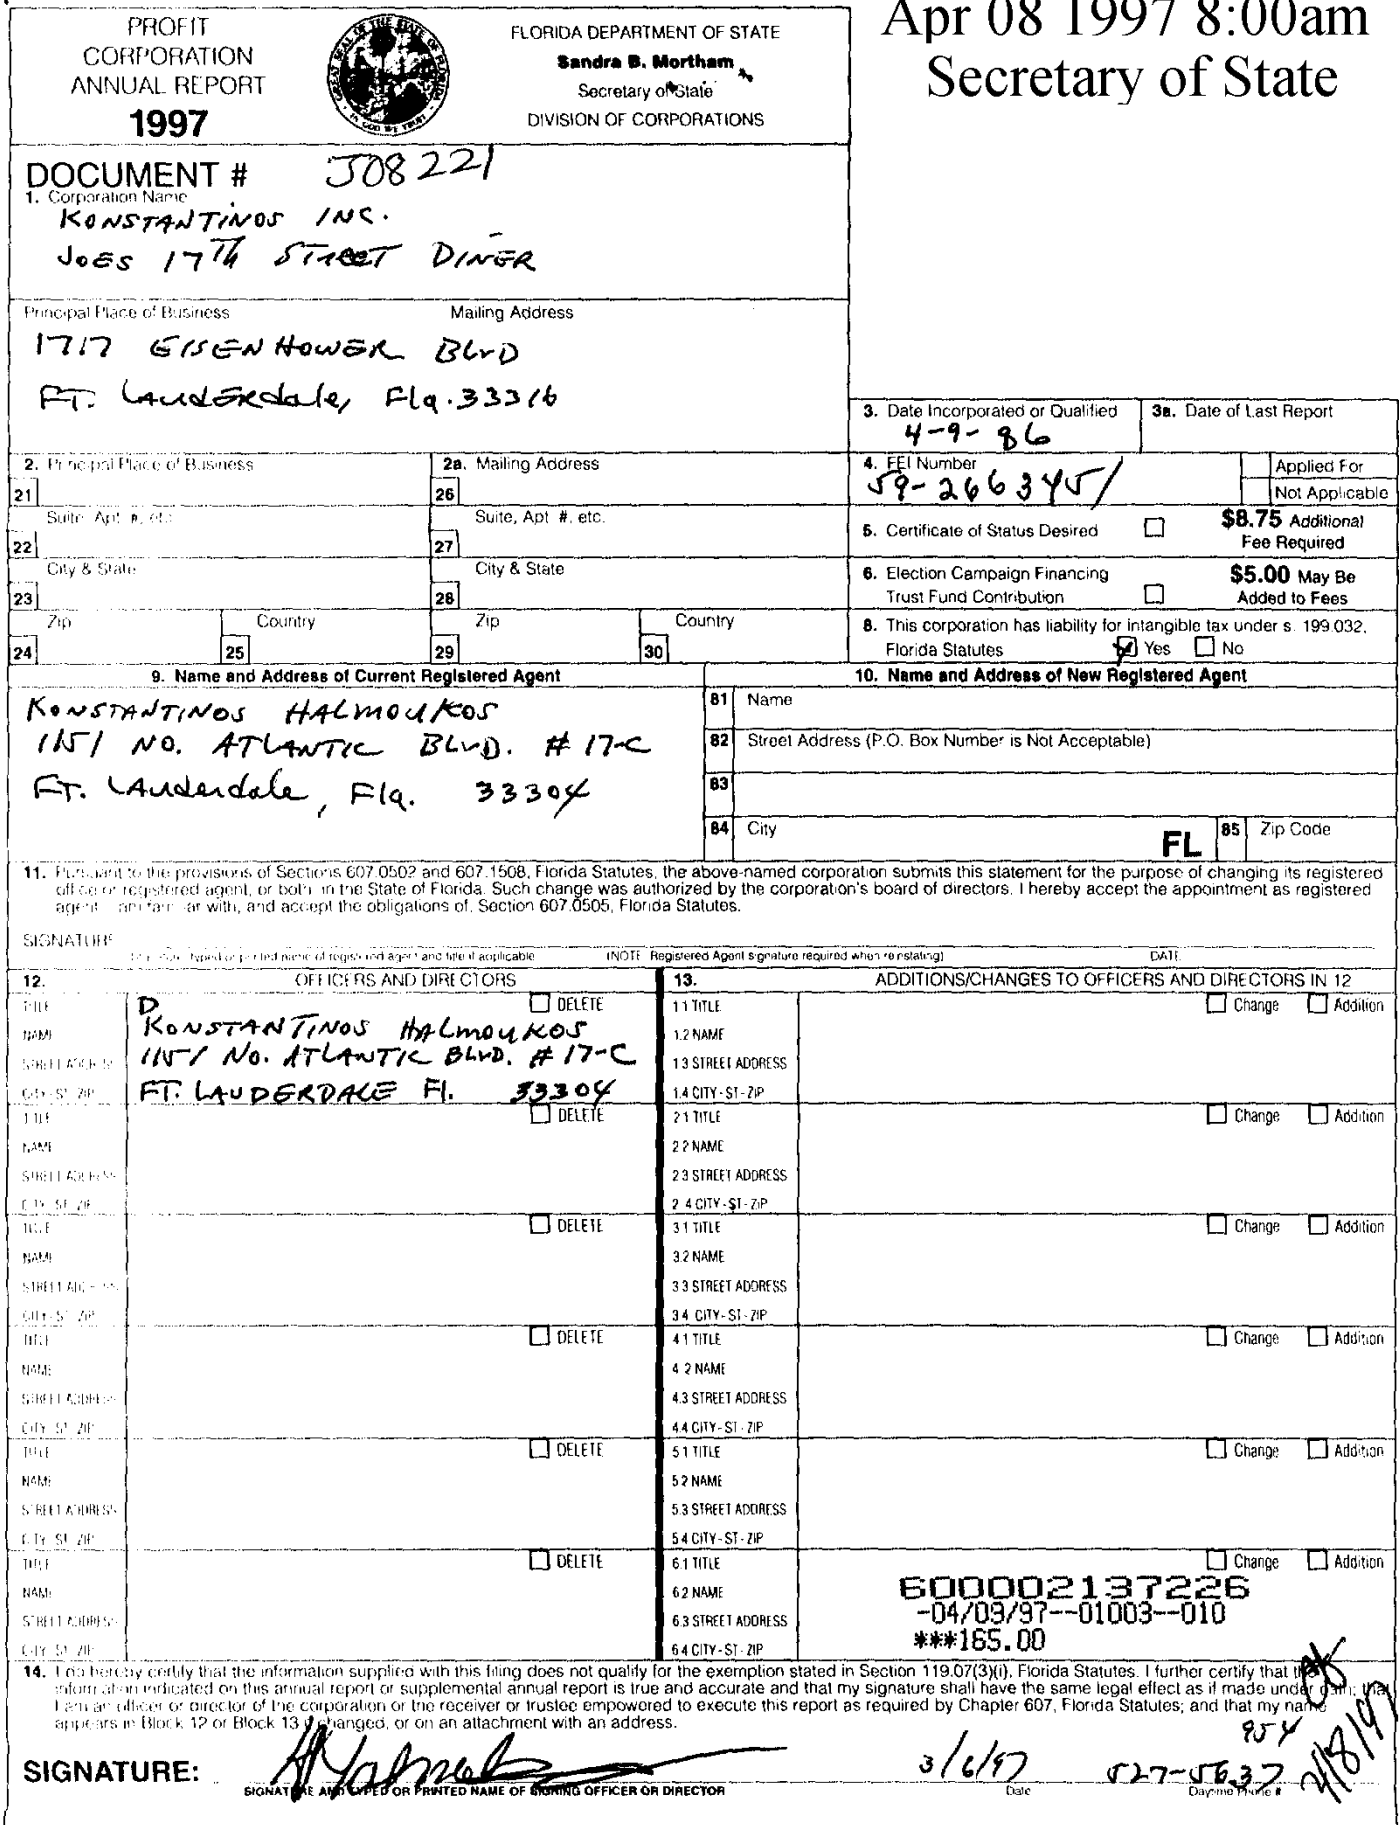 PROFIT
CORPORATION
ANNUAL REPORT
1997
FLORIDA DEPARTMENT OF STATE
Sandra B. Mortham
Secretary of State
DIVISION OF CORPORATIONS
Apr 08 1997 8:00am
Secretary of State
DOCUMENT # J08221
1. Corporation Name
KONSTANTINOS INC.
JOES 17TH STREET DINER
Principal Place of Business Mailing Address
1717 EISENHOWER BLVD
FT. LAUDERdale, Fla. 33316
3. Date Incorporated or Qualified
4-9-86
3a. Date of Last Report
2. Principal Place of Business
21
2a. Mailing Address
26
4. FEI Number
59-2663451
Applied For
Not Applicable
Suite, Apt. #, etc.
22
Suite, Apt. #, etc.
27
5. Certificate of Status Desired
$8.75 Additional
Fee Required
City & State
23
City & State
28
6. Election Campaign Financing
Trust Fund Contribution
$5.00 May Be
Added to Fees
Zip
24
Country
25
Zip
29
Country
30
8. This corporation has liability for intangible tax under s. 199.032,
Florida Statutes Yes No
9. Name and Address of Current Registered Agent
KONSTANTINOS HALMOUKOS
1151 NO. ATLANTIC BLVD. # 17-C
FT. LAuderdale, Fla. 33304
10. Name and Address of New Registered Agent
81 Name
82 Street Address (P.O. Box Number is Not Acceptable)
83
84 City FL 85 Zip Code
11. Pursuant to the provisions of Sections 607.0502 and 607.1508, Florida Statutes, the above-named corporation submits this statement for the purpose of changing its registered
office or registered agent, or both, in the State of Florida. Such change was authorized by the corporation's board of directors. I hereby accept the appointment as registered
agent. I am familiar with, and accept the obligations of, Section 607.0505, Florida Statutes.
SIGNATURE
typed or printed name of registered agent and title if applicable (NOTE Registered Agent signature required when reinstating) DATE
12. OFFICERS AND DIRECTORS
13. ADDITIONS/CHANGES TO OFFICERS AND DIRECTORS IN 12
TITLE D DELETE
NAME KONSTANTINOS HALMOUKOS
STREET ADDRESS 1151 No. ATLANTIC BLVD. # 17-C
CITY-ST-ZIP FT. LAUDERDALE Fl. 33304
1.1 TITLE Change Addition
1.2 NAME
1.3 STREET ADDRESS
1.4 CITY-ST-ZIP
TITLE DELETE
NAME
STREET ADDRESS
CITY-ST-ZIP
2.1 TITLE Change Addition
2.2 NAME
2.3 STREET ADDRESS
2.4 CITY-ST-ZIP
TITLE DELETE
NAME
STREET ADDRESS
CITY-ST-ZIP
3.1 TITLE Change Addition
3.2 NAME
3.3 STREET ADDRESS
3.4 CITY-ST-ZIP
TITLE DELETE
NAME
STREET ADDRESS
CITY-ST-ZIP
4.1 TITLE Change Addition
4.2 NAME
4.3 STREET ADDRESS
4.4 CITY-ST-ZIP
TITLE DELETE
NAME
STREET ADDRESS
CITY-ST-ZIP
5.1 TITLE Change Addition
5.2 NAME
5.3 STREET ADDRESS
5.4 CITY-ST-ZIP
TITLE DELETE
NAME
STREET ADDRESS
CITY-ST-ZIP
6.1 TITLE Change Addition
6.2 NAME
6.3 STREET ADDRESS
6.4 CITY-ST-ZIP
6000002137226
-04/09/97--01003--010
***165.00
14. I do hereby certify that the information supplied with this filing does not qualify for the exemption stated in Section 119.07(3)(i), Florida Statutes. I further certify that the
information indicated on this annual report or supplemental annual report is true and accurate and that my signature shall have the same legal effect as if made under oath; that
I am an officer or director of the corporation or the receiver or trustee empowered to execute this report as required by Chapter 607, Florida Statutes; and that my name
appears in Block 12 or Block 13 if changed, or on an attachment with an address.
SIGNATURE: 3/6/97 954 527-5637
SIGNATURE AND TYPED OR PRINTED NAME OF SIGNING OFFICER OR DIRECTOR Date Daytime Phone #
4/8/97